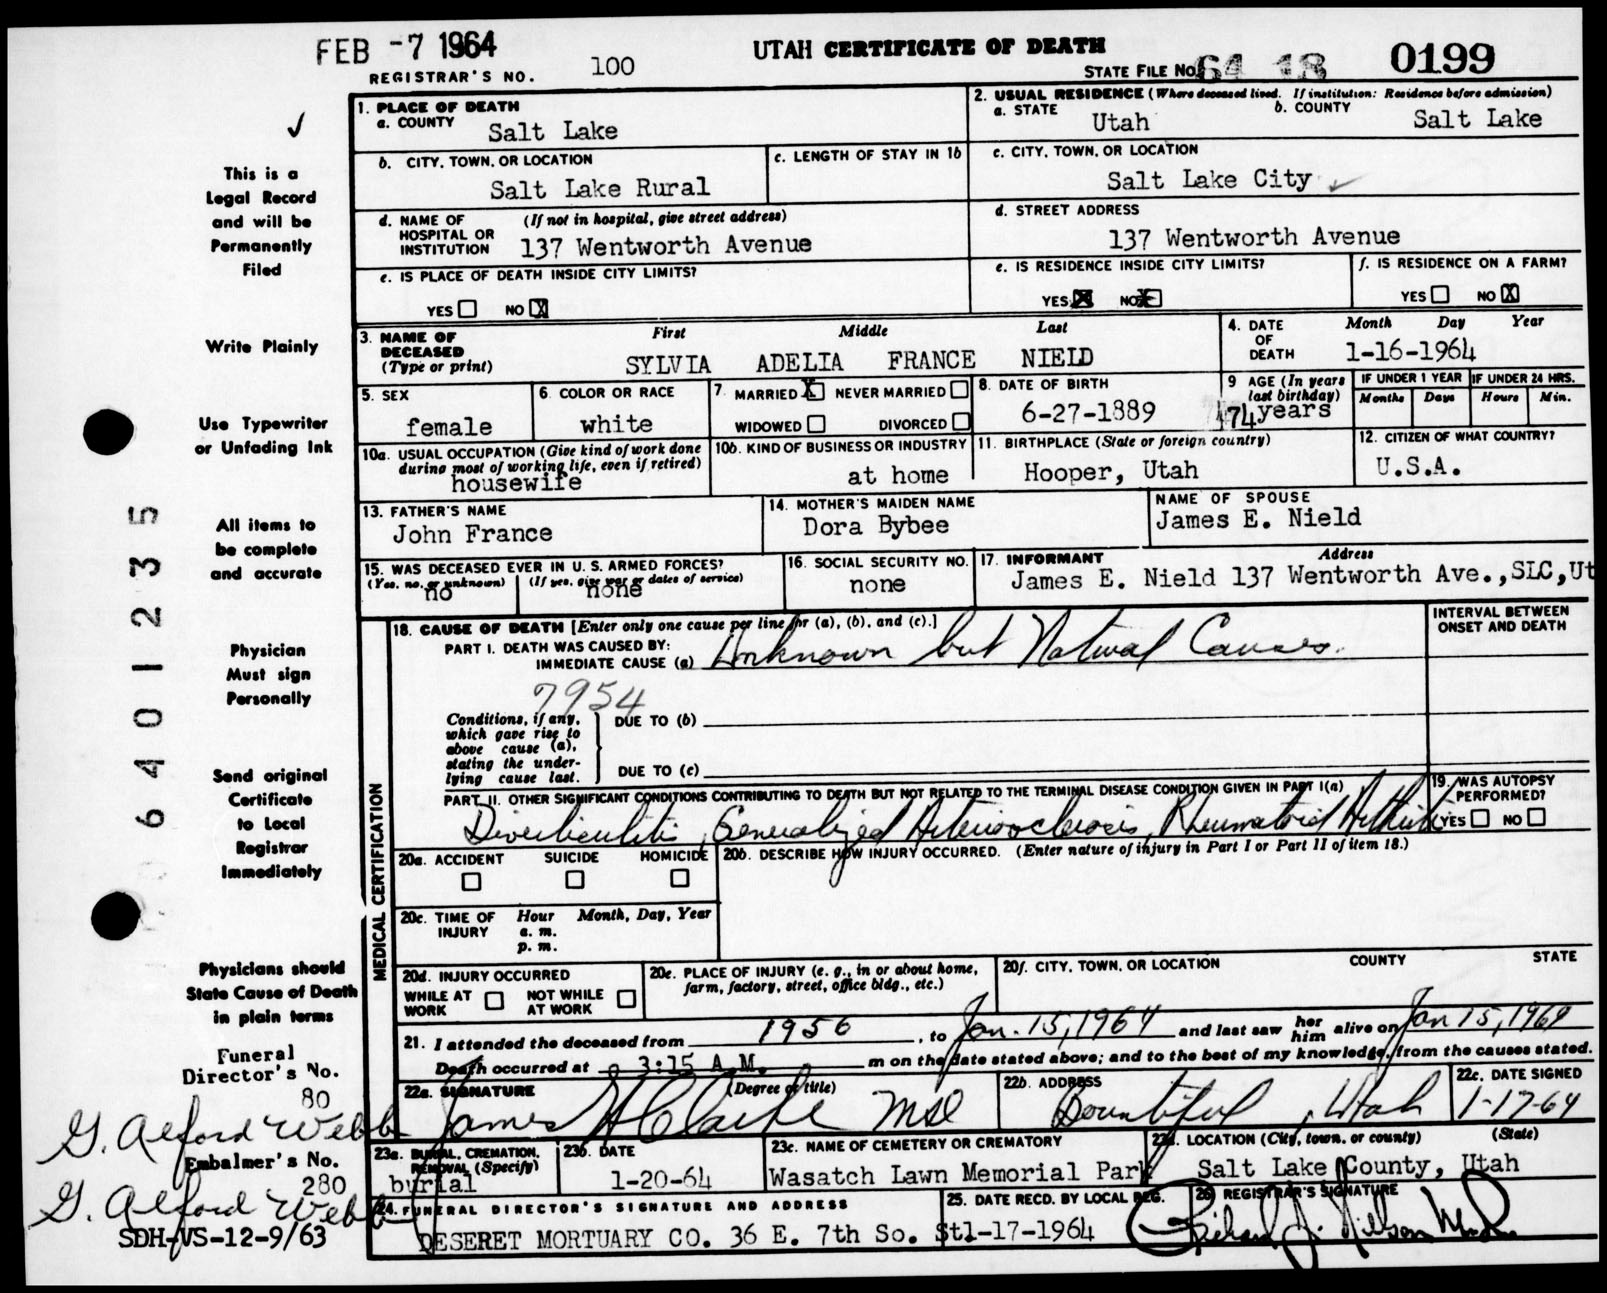 FEB -7 1964
UTAH CERTIFICATE OF DEATH
REGISTRAR'S NO. 100
STATE FILE NO. 64 18 0199
1. PLACE OF DEATH
a. COUNTY Salt Lake
2. USUAL RESIDENCE (Where deceased lived. If institution: Residence before admission)
a. STATE Utah b. COUNTY Salt Lake
b. CITY, TOWN, OR LOCATION Salt Lake Rural
c. LENGTH OF STAY IN 1b
c. CITY, TOWN, OR LOCATION Salt Lake City
d. NAME OF HOSPITAL OR INSTITUTION (If not in hospital, give street address) 137 Wentworth Avenue
d. STREET ADDRESS 137 Wentworth Avenue
e. IS PLACE OF DEATH INSIDE CITY LIMITS? YES NO X
e. IS RESIDENCE INSIDE CITY LIMITS? YES X NO X
f. IS RESIDENCE ON A FARM? YES NO X
3. NAME OF DECEASED (Type or print) First Middle Last
SYLVIA ADELIA FRANCE NIELD
4. DATE OF DEATH Month Day Year 1-16-1964
5. SEX female
6. COLOR OR RACE white
7. MARRIED X NEVER MARRIED WIDOWED DIVORCED
8. DATE OF BIRTH 6-27-1889
9 AGE (In years last birthday) 74 years
IF UNDER 1 YEAR Months Days
IF UNDER 24 HRS. Hours Min.
10a. USUAL OCCUPATION (Give kind of work done during most of working life, even if retired) housewife
10b. KIND OF BUSINESS OR INDUSTRY at home
11. BIRTHPLACE (State or foreign country) Hooper, Utah
12. CITIZEN OF WHAT COUNTRY? U.S.A.
13. FATHER'S NAME John France
14. MOTHER'S MAIDEN NAME Dora Bybee
NAME OF SPOUSE James E. Nield
15. WAS DECEASED EVER IN U. S. ARMED FORCES? (Yes, no, or unknown) no (If yes, give war or dates of service) none
16. SOCIAL SECURITY NO. none
17. INFORMANT Address
James E. Nield 137 Wentworth Ave.,SLC,Ut
18. CAUSE OF DEATH [Enter only one cause per line for (a), (b), and (c).]
INTERVAL BETWEEN ONSET AND DEATH
PART I. DEATH WAS CAUSED BY:
IMMEDIATE CAUSE (a) Unknown but Natural Causes.
7954
Conditions, if any, which gave rise to above cause (a), stating the underlying cause last.
DUE TO (b)
DUE TO (c)
PART II. OTHER SIGNIFICANT CONDITIONS CONTRIBUTING TO DEATH BUT NOT RELATED TO THE TERMINAL DISEASE CONDITION GIVEN IN PART I(a)
Diverticulitis, Generalized Arteriosclerosis, Rheumatoid Arthritis
19. WAS AUTOPSY PERFORMED? YES NO
MEDICAL CERTIFICATION
20a. ACCIDENT SUICIDE HOMICIDE
20b. DESCRIBE HOW INJURY OCCURRED. (Enter nature of injury in Part I or Part II of item 18.)
20c. TIME OF INJURY Hour a. m. p. m. Month, Day, Year
20d. INJURY OCCURRED WHILE AT WORK NOT WHILE AT WORK
20e. PLACE OF INJURY (e. g., in or about home, farm, factory, street, office bldg., etc.)
20f. CITY, TOWN, OR LOCATION COUNTY STATE
21. I attended the deceased from 1956, to Jan. 15, 1964 and last saw her him alive on Jan 15, 1964
Death occurred at 3:15 A.M. m on the date stated above; and to the best of my knowledge, from the causes stated.
22a. SIGNATURE (Degree or title) James H Clarke MD
22b. ADDRESS Bountiful, Utah
22c. DATE SIGNED 1-17-64
23a. BURIAL, CREMATION, REMOVAL (Specify) burial
23b. DATE 1-20-64
23c. NAME OF CEMETERY OR CREMATORY Wasatch Lawn Memorial Park
23d. LOCATION (City, town, or county) (State) Salt Lake County, Utah
24. FUNERAL DIRECTOR'S SIGNATURE AND ADDRESS
DESERET MORTUARY CO. 36 E. 7th So. St
25. DATE RECD. BY LOCAL REG. 1-17-1964
26. REGISTRAR'S SIGNATURE
This is a
Legal Record
and will be
Permanently
Filed
Write Plainly
Use Typewriter
or Unfading Ink
All items to
be complete
and accurate
Physician
Must sign
Personally
Send original
Certificate
to Local
Registrar
Immediately
Physicians should
State Cause of Death
in plain terms
Funeral
Director's No.
80
G. Alford Webb
Embalmer's No.
280
G. Alford Webb
SDH-VS-12-9/63
6401235